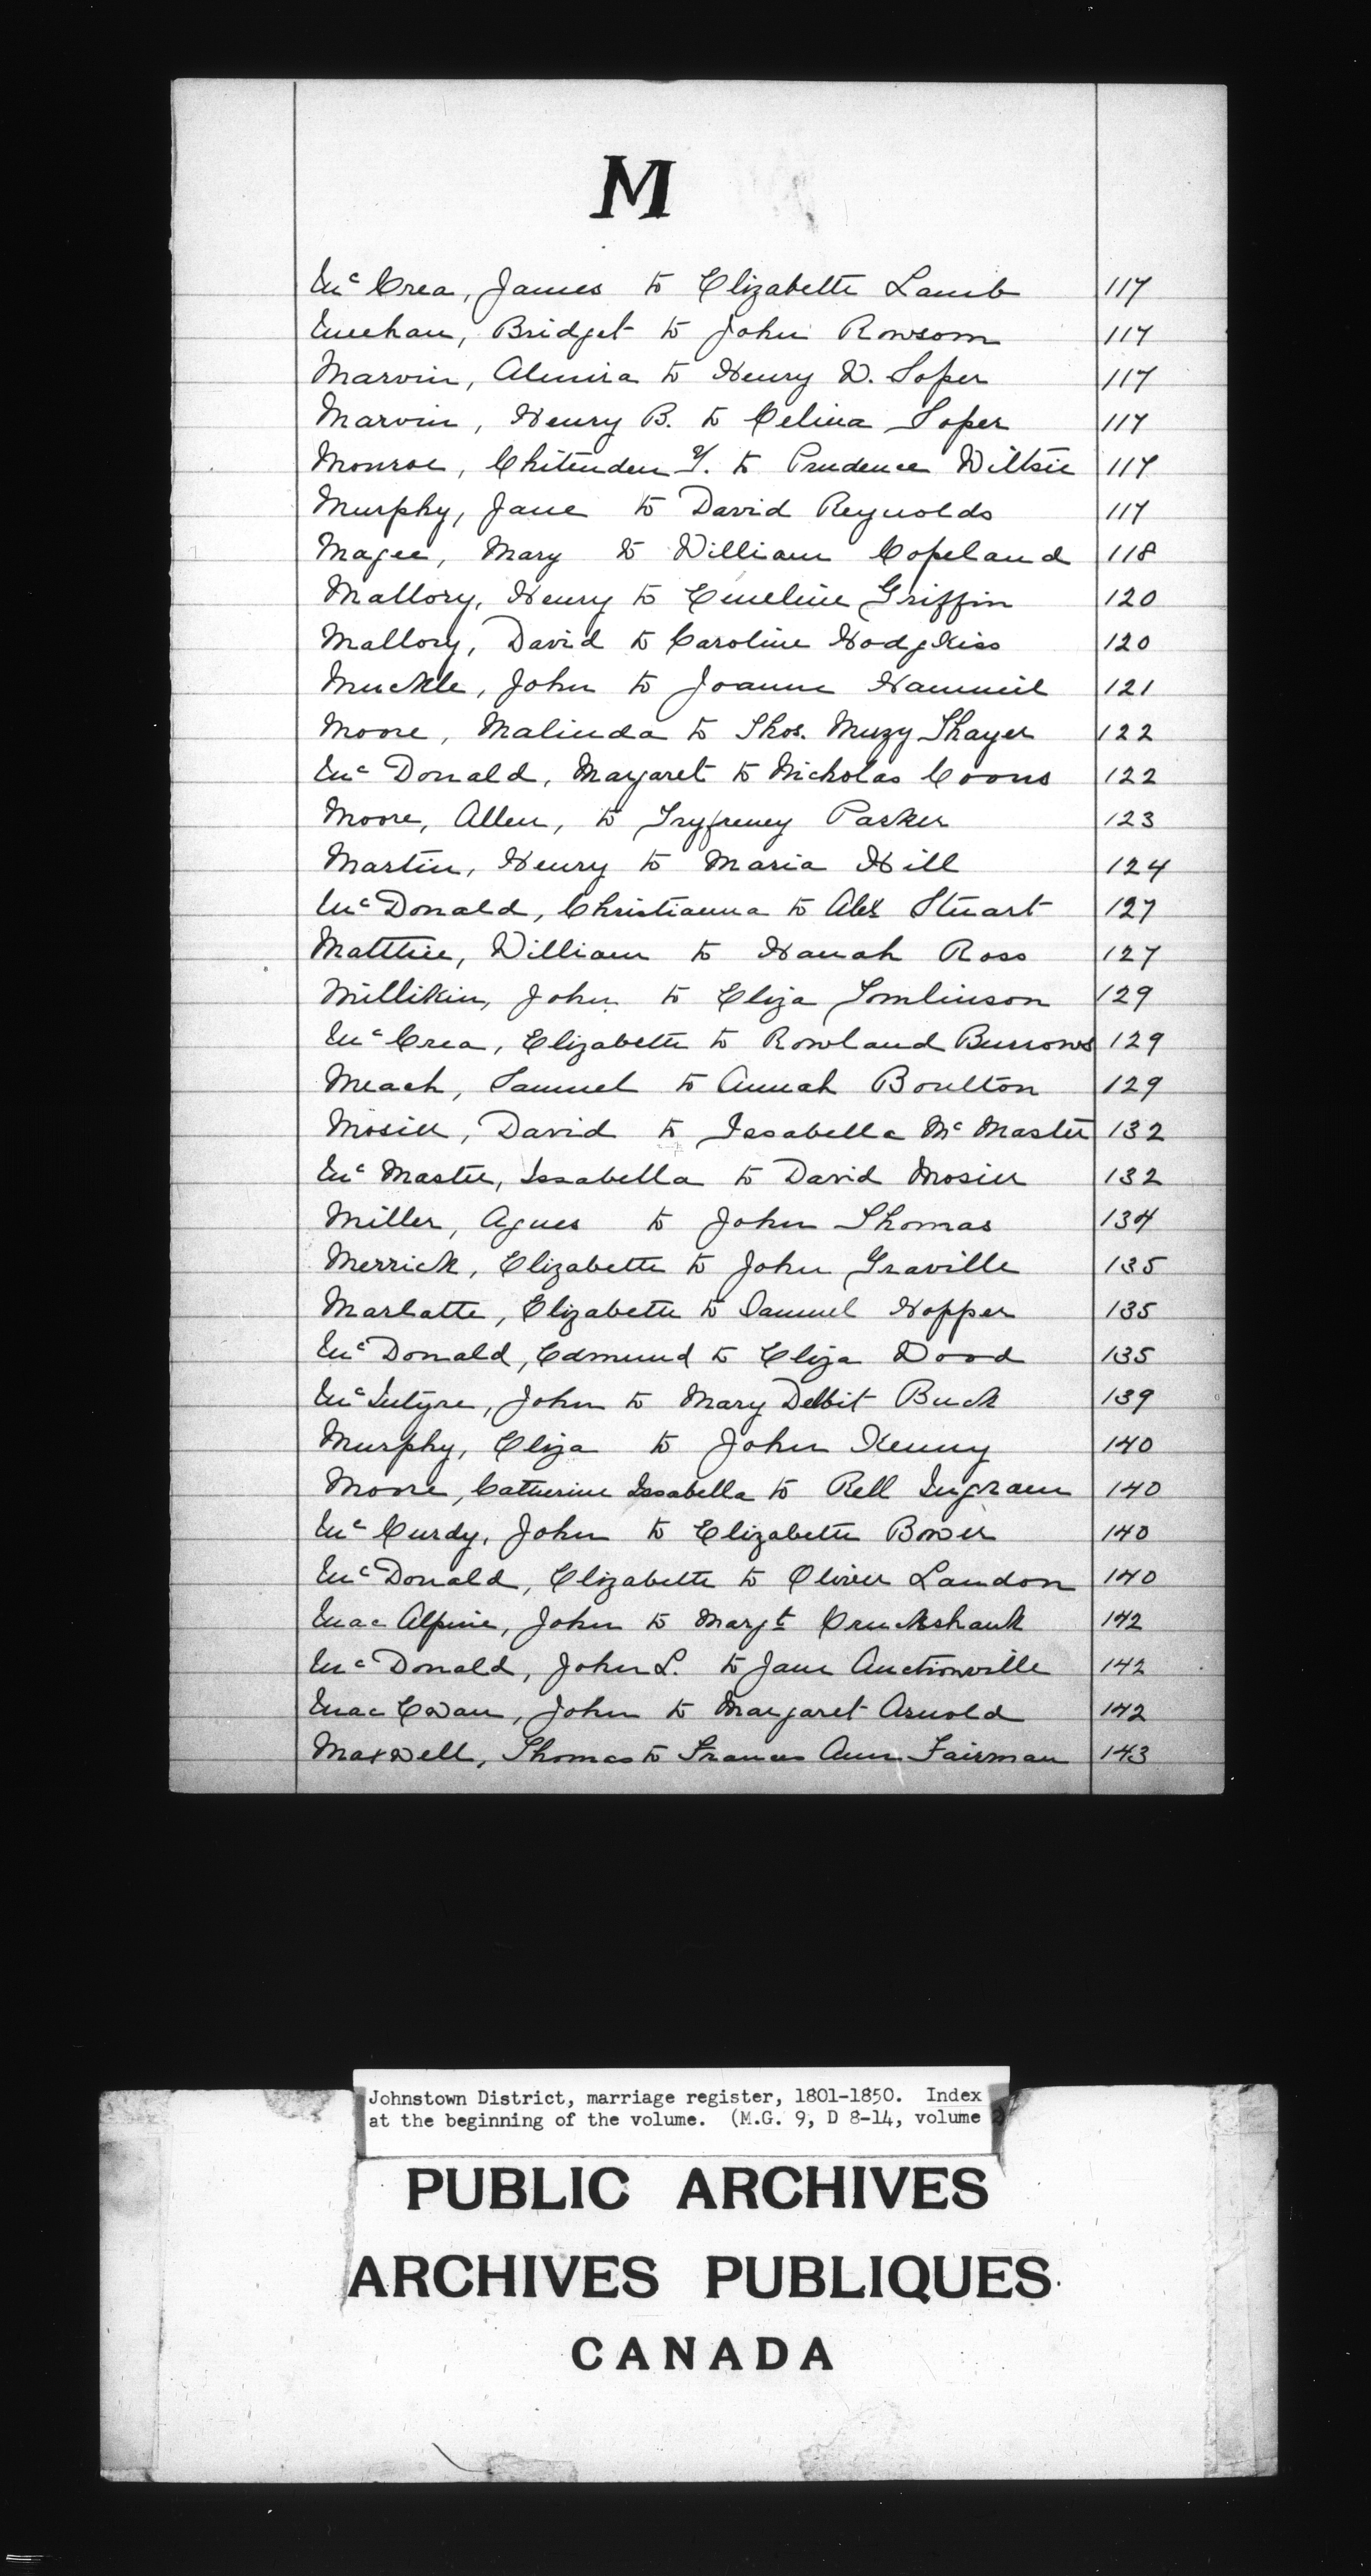 M
McCrea, James to Elizabeth Lamb 117
Meehan, Bridget to John Rowsom 117
Marvin, Almira to Henry W. Soper 117
Marvin, Henry B. to Celina Soper 117
Monroe, Chitenden Y. to Prudence Wiltsie 117
Murphy, Jane to David Reynolds 117
Magee, Mary to William Copeland 118
Mallory, Henry to Emeline Griffin 120
Mallory, David to Caroline Hodgkiss 120
Muckle, John to Joanne Hammil 121
Moore, Malinda to Thos. Muzy Thayer 122
McDonald, Margaret to Nicholas Coons 122
Moore, Allen, to Tryfreney Parker 123
Martin, Henry to Maria Hill 124
McDonald, Christianna to Alex Stuart 127
Matthie, William to Hanah Ross 127
Millikin, John to Eliza Tomlinson 129
McCrea, Elizabeth to Rowland Burrows 129
Meach, Samuel to Annah Boulton 129
Mosier, David to Issabella McMaster 132
McMaster, Issabella to David Mosier 132
Miller, Agnes to John Thomas 134
Merrick, Elizabeth to John Graville 135
Marlatte, Elizabeth to Samuel Hopper 135
McDonald, Edmund to Eliza Wood 135
McIntyre, John to Mary Delbit Buck 139
Murphy, Eliza to John Kenny 140
Moore, Catherine Issabella to Rell Ingram 140
McCurdy, John to Elizabeth Bower 140
McDonald, Elizabeth to Oliver Landon 140
MacAlpine, John to Margt Cruckshank 142
McDonald, John L. to Jane Auctionville 142
MacEwan, John to Margaret Arnold 142
Maxwell, Thomas to Frances Ann Fairman 143
Johnstown District, marriage register, 1801-1850. Index
at the beginning of the volume. (M.G. 9, D 8-14, volume
PUBLIC ARCHIVES
ARCHIVES PUBLIQUES
CANADA